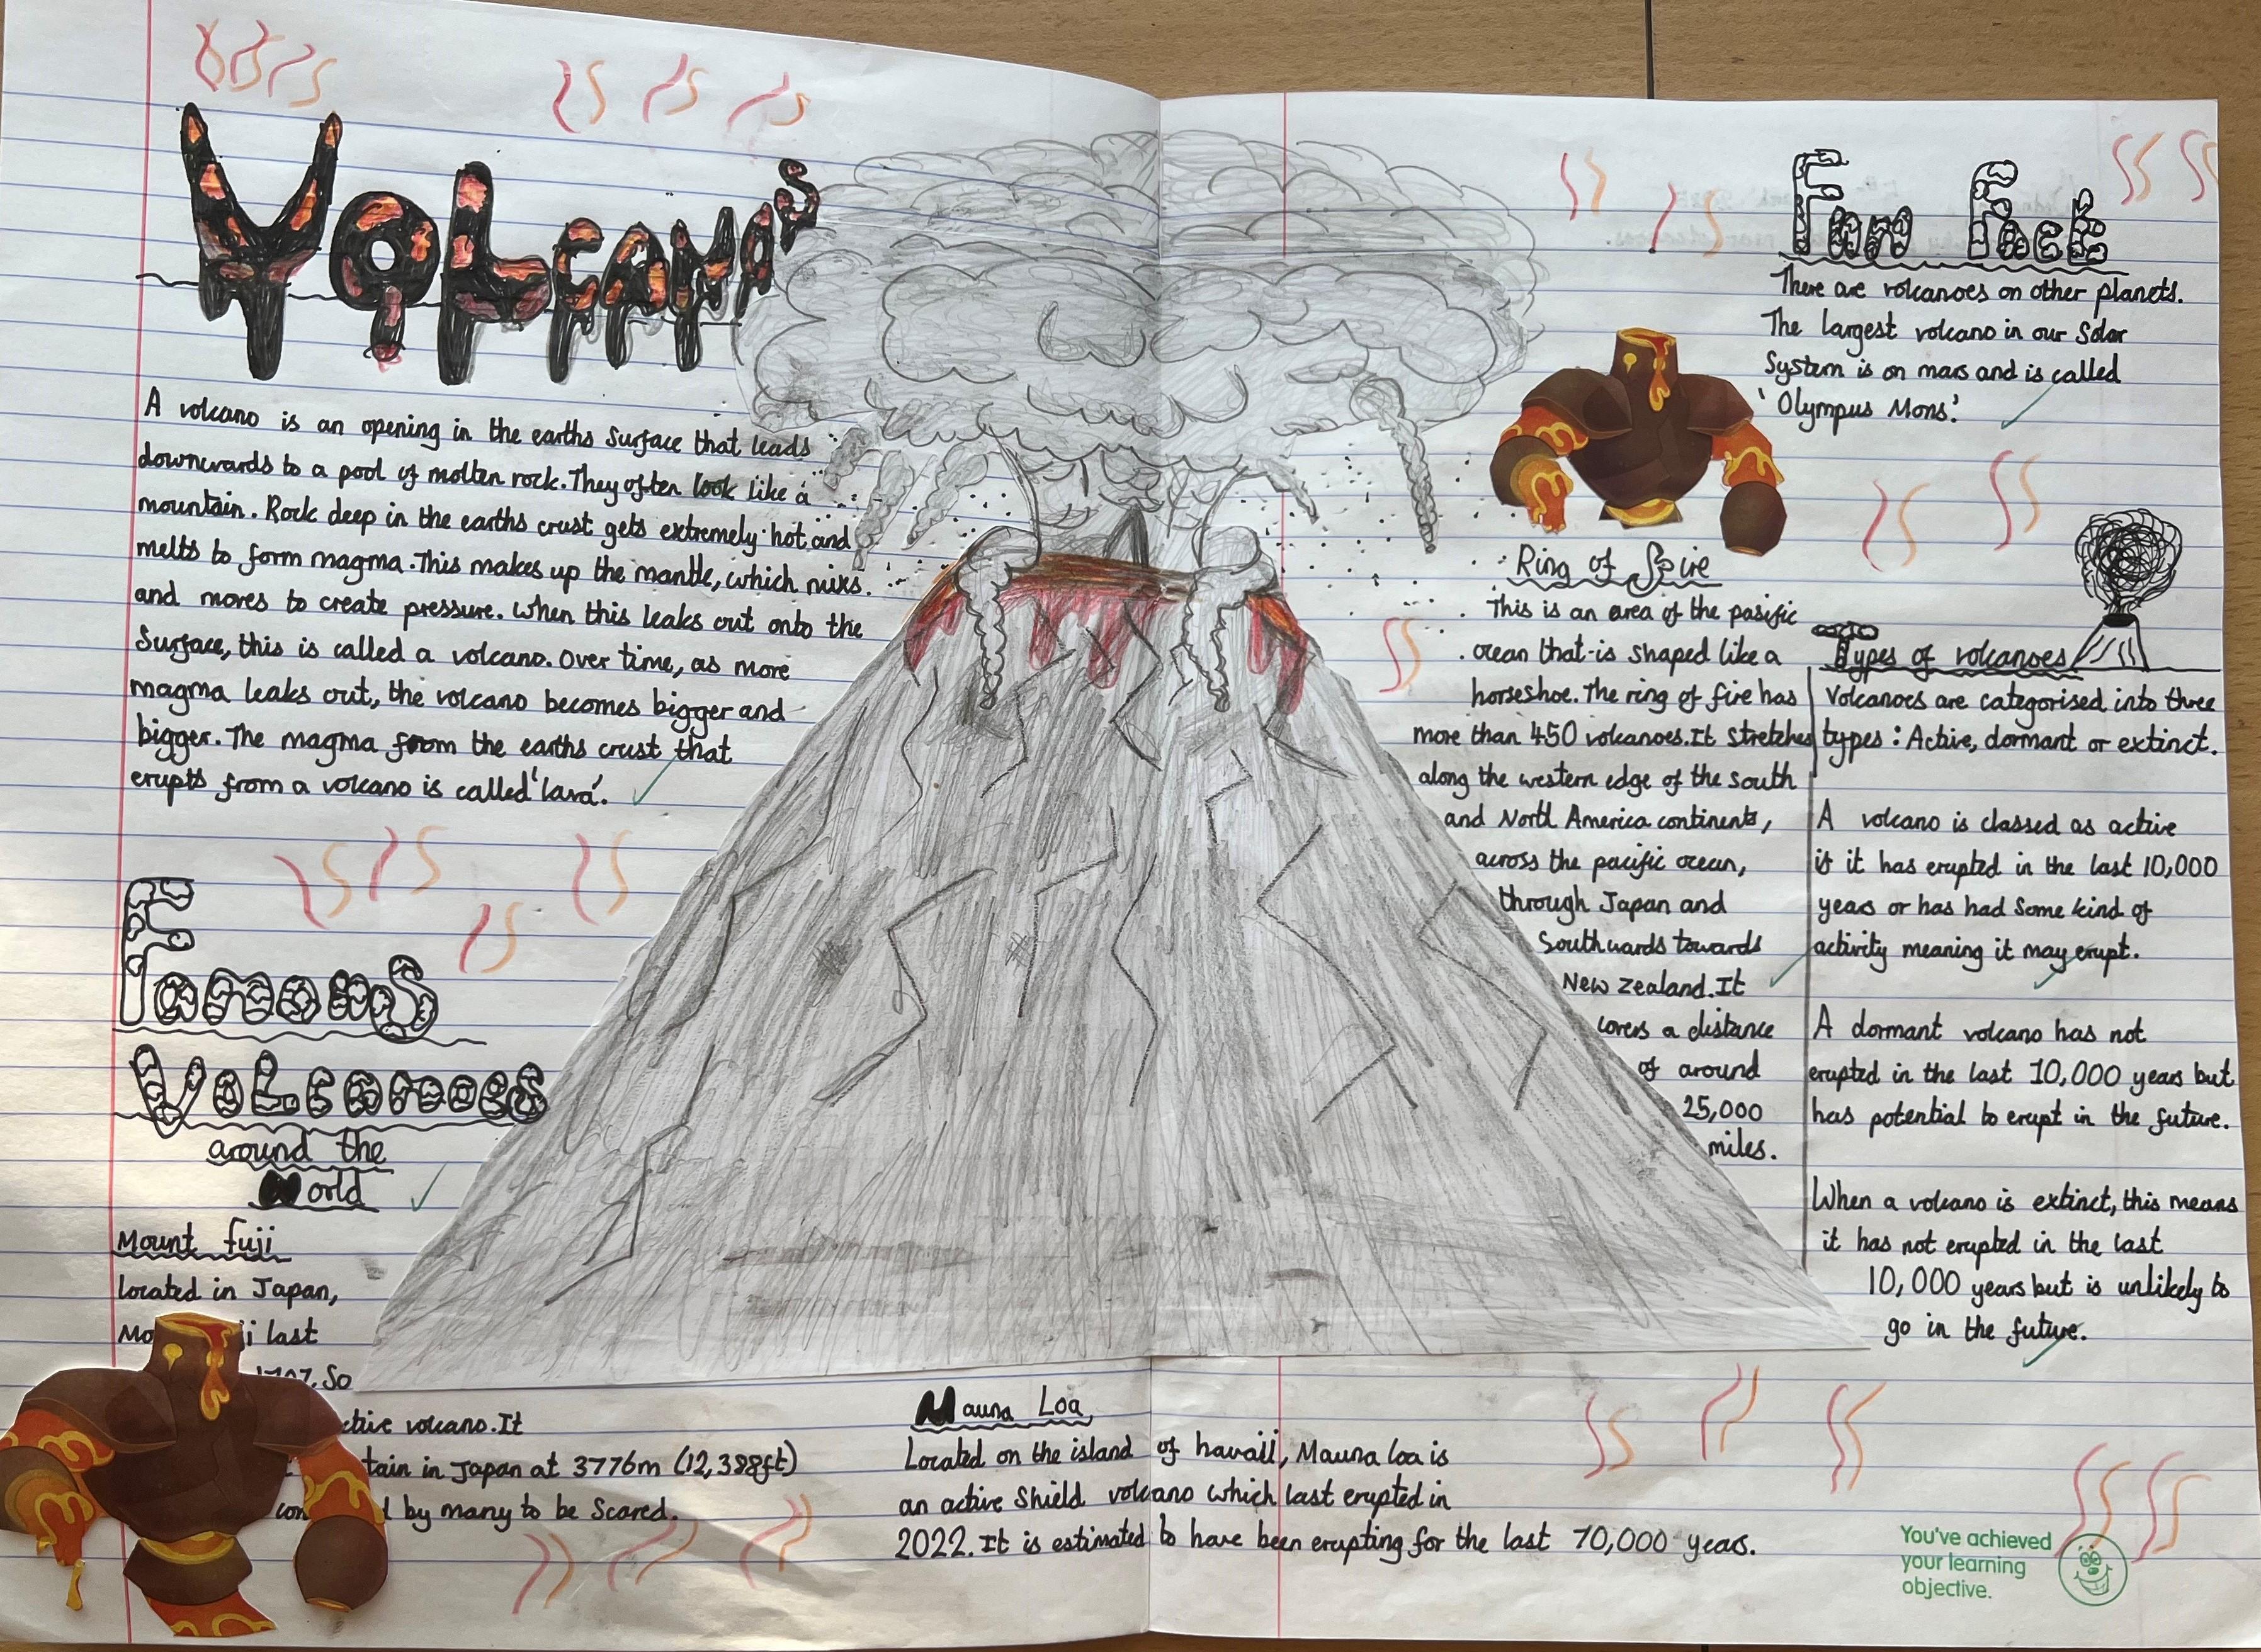 VOLCANO'S
A volcano is an opening in the earths surface that leads
downwards to a pool of molten rock. They often look like a
mountain. Rock deep in the earths crust gets extremely hot and
melts to form magma. This makes up the mantle, which mixs.
and moves to create pressure. When this leaks out onto the
Surface, this is called a volcano. Over time, as more
magma leaks out, the volcano becomes bigger and
bigger. The magma from the earths crust that
erupts from a volcano is called 'lava'.
Famous
Volcanoes
around the
World
Mount fuji
located in Japan,
last
So
volcano. It
in Japan at 3776m (12,388ft)
by many to be Scared.
Mauna Loa
Located on the island of havaii, Mauna loa is
an active Shield volcano which last erupted in
2022. It is estimated to have been erupting for the last 70,000 years.
Fun Fact
There are volcanoes on other planets.
The largest volcano in our Solar
System is on mars and is called
'Olympus Mons'.
Ring of fire
This is an area of the pasific
ocean that is shaped like a
horseshoe. The ring of fire has
more than 450 volcanoes. It stretches
along the western edge of the south
and North America continents,
across the pacific ocean,
through Japan and
Southwards towards
New Zealand. It
covers a distance
of around
25,000
miles.
Types of volcanoes
Volcanoes are categorised into three
types: Active, dormant or extinct.
A volcano is classed as active
if it has erupted in the last 10,000
years or has had some kind of
activity meaning it may erupt.
A dormant volcano has not
erupted in the last 10,000 years but
has potential to erupt in the future.
When a volcano is extinct, this means
it has not erupted in the last
10,000 years but is unlikely to
go in the future.
You've achieved
your learning
objective.